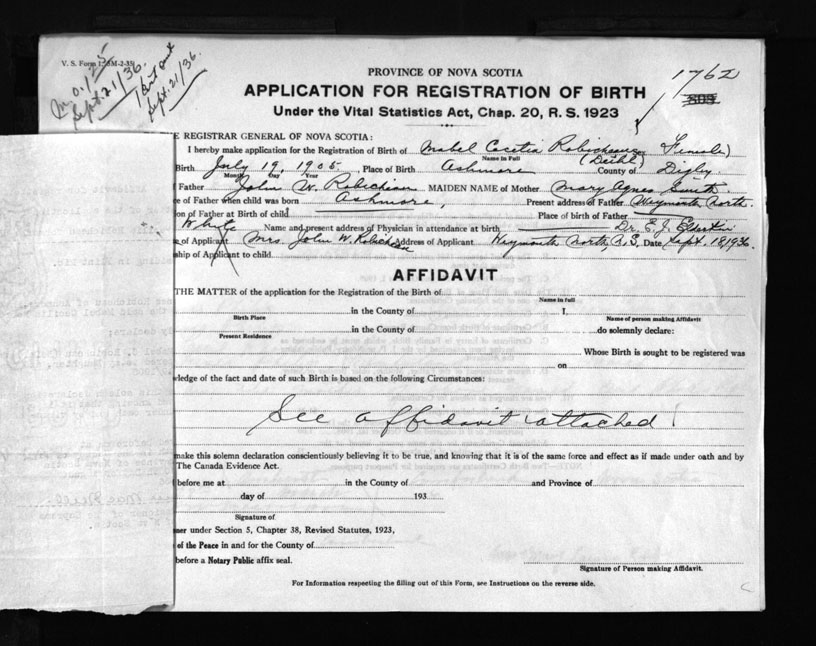 V. S. Form
M.O. 1/25
Sept. 21/36.
1 Cert sent
Sept. 21/36.
1762
PROVINCE OF NOVA SCOTIA
APPLICATION FOR REGISTRATION OF BIRTH
Under the Vital Statistics Act, Chap. 20, R. S. 1923
E REGISTRAR GENERAL OF NOVA SCOTIA:
I hereby make application for the Registration of Birth of Mabel Cecelia Robicheau (Female)
Name in Full
(Diehl)
Birth July 19, 1905, Place of Birth Ashmore County of Digby
Month Day Year
Father John W. Robicheau MAIDEN NAME of Mother Mary Agnes Smith.
e of Father when child was born Ashmore, Present address of Father Weymouth North.
on of Father at Birth of child Place of birth of Father
White Name and present address of Physician in attendance at birth Dr. E. J. Elderkin
e of Applicant Mrs. John W. Robicheau Address of Applicant Weymouth North, N.S. Date Sept. 18, 1936.
ship of Applicant to child
AFFIDAVIT
THE MATTER of the application for the Registration of the Birth of
Name in Full
in the County of I,
Birth Place Name of person making Affidavit
in the County of do solemnly declare:
Present Residence
Whose Birth is sought to be registered was
on
wledge of the fact and date of such Birth is based on the following Circumstances:
See affidavit attached
make this solemn declaration conscientiously believing it to be true, and knowing that it is of the same force and effect as if made under oath and by
The Canada Evidence Act.
before me at in the County of and Province of
day of 193
Signature of
ner under Section 5, Chapter 38, Revised Statutes, 1923,
of the Peace in and for the County of
before a Notary Public affix seal.
Signature of Person making Affidavit.
For Information respecting the filling out of this Form, see Instructions on the reverse side.